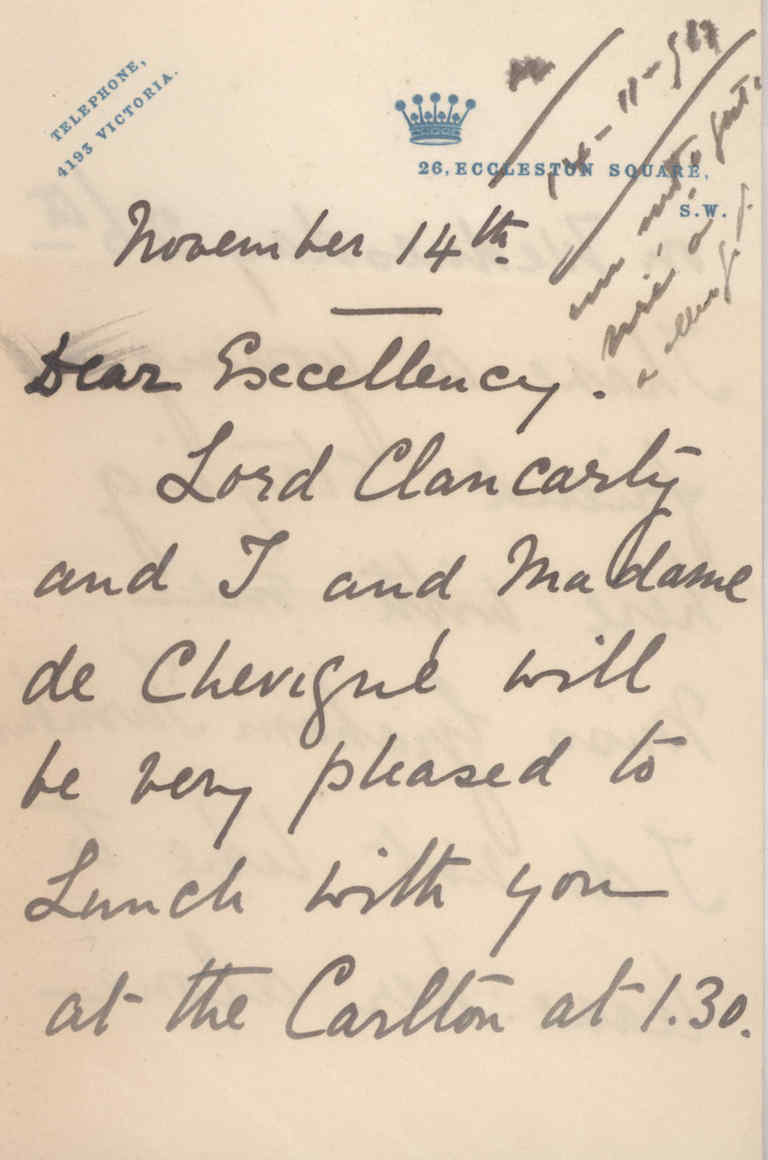 TELEPHONE,
4193 VICTORIA.
26, ECCLESTON SQUARE,
S.W.
November 14th
Dear Excellency.
Lord Clancarty
and I and Madame
de Chevigné will
be very pleased to
Lunch with you
at the Carlton at 1.30.